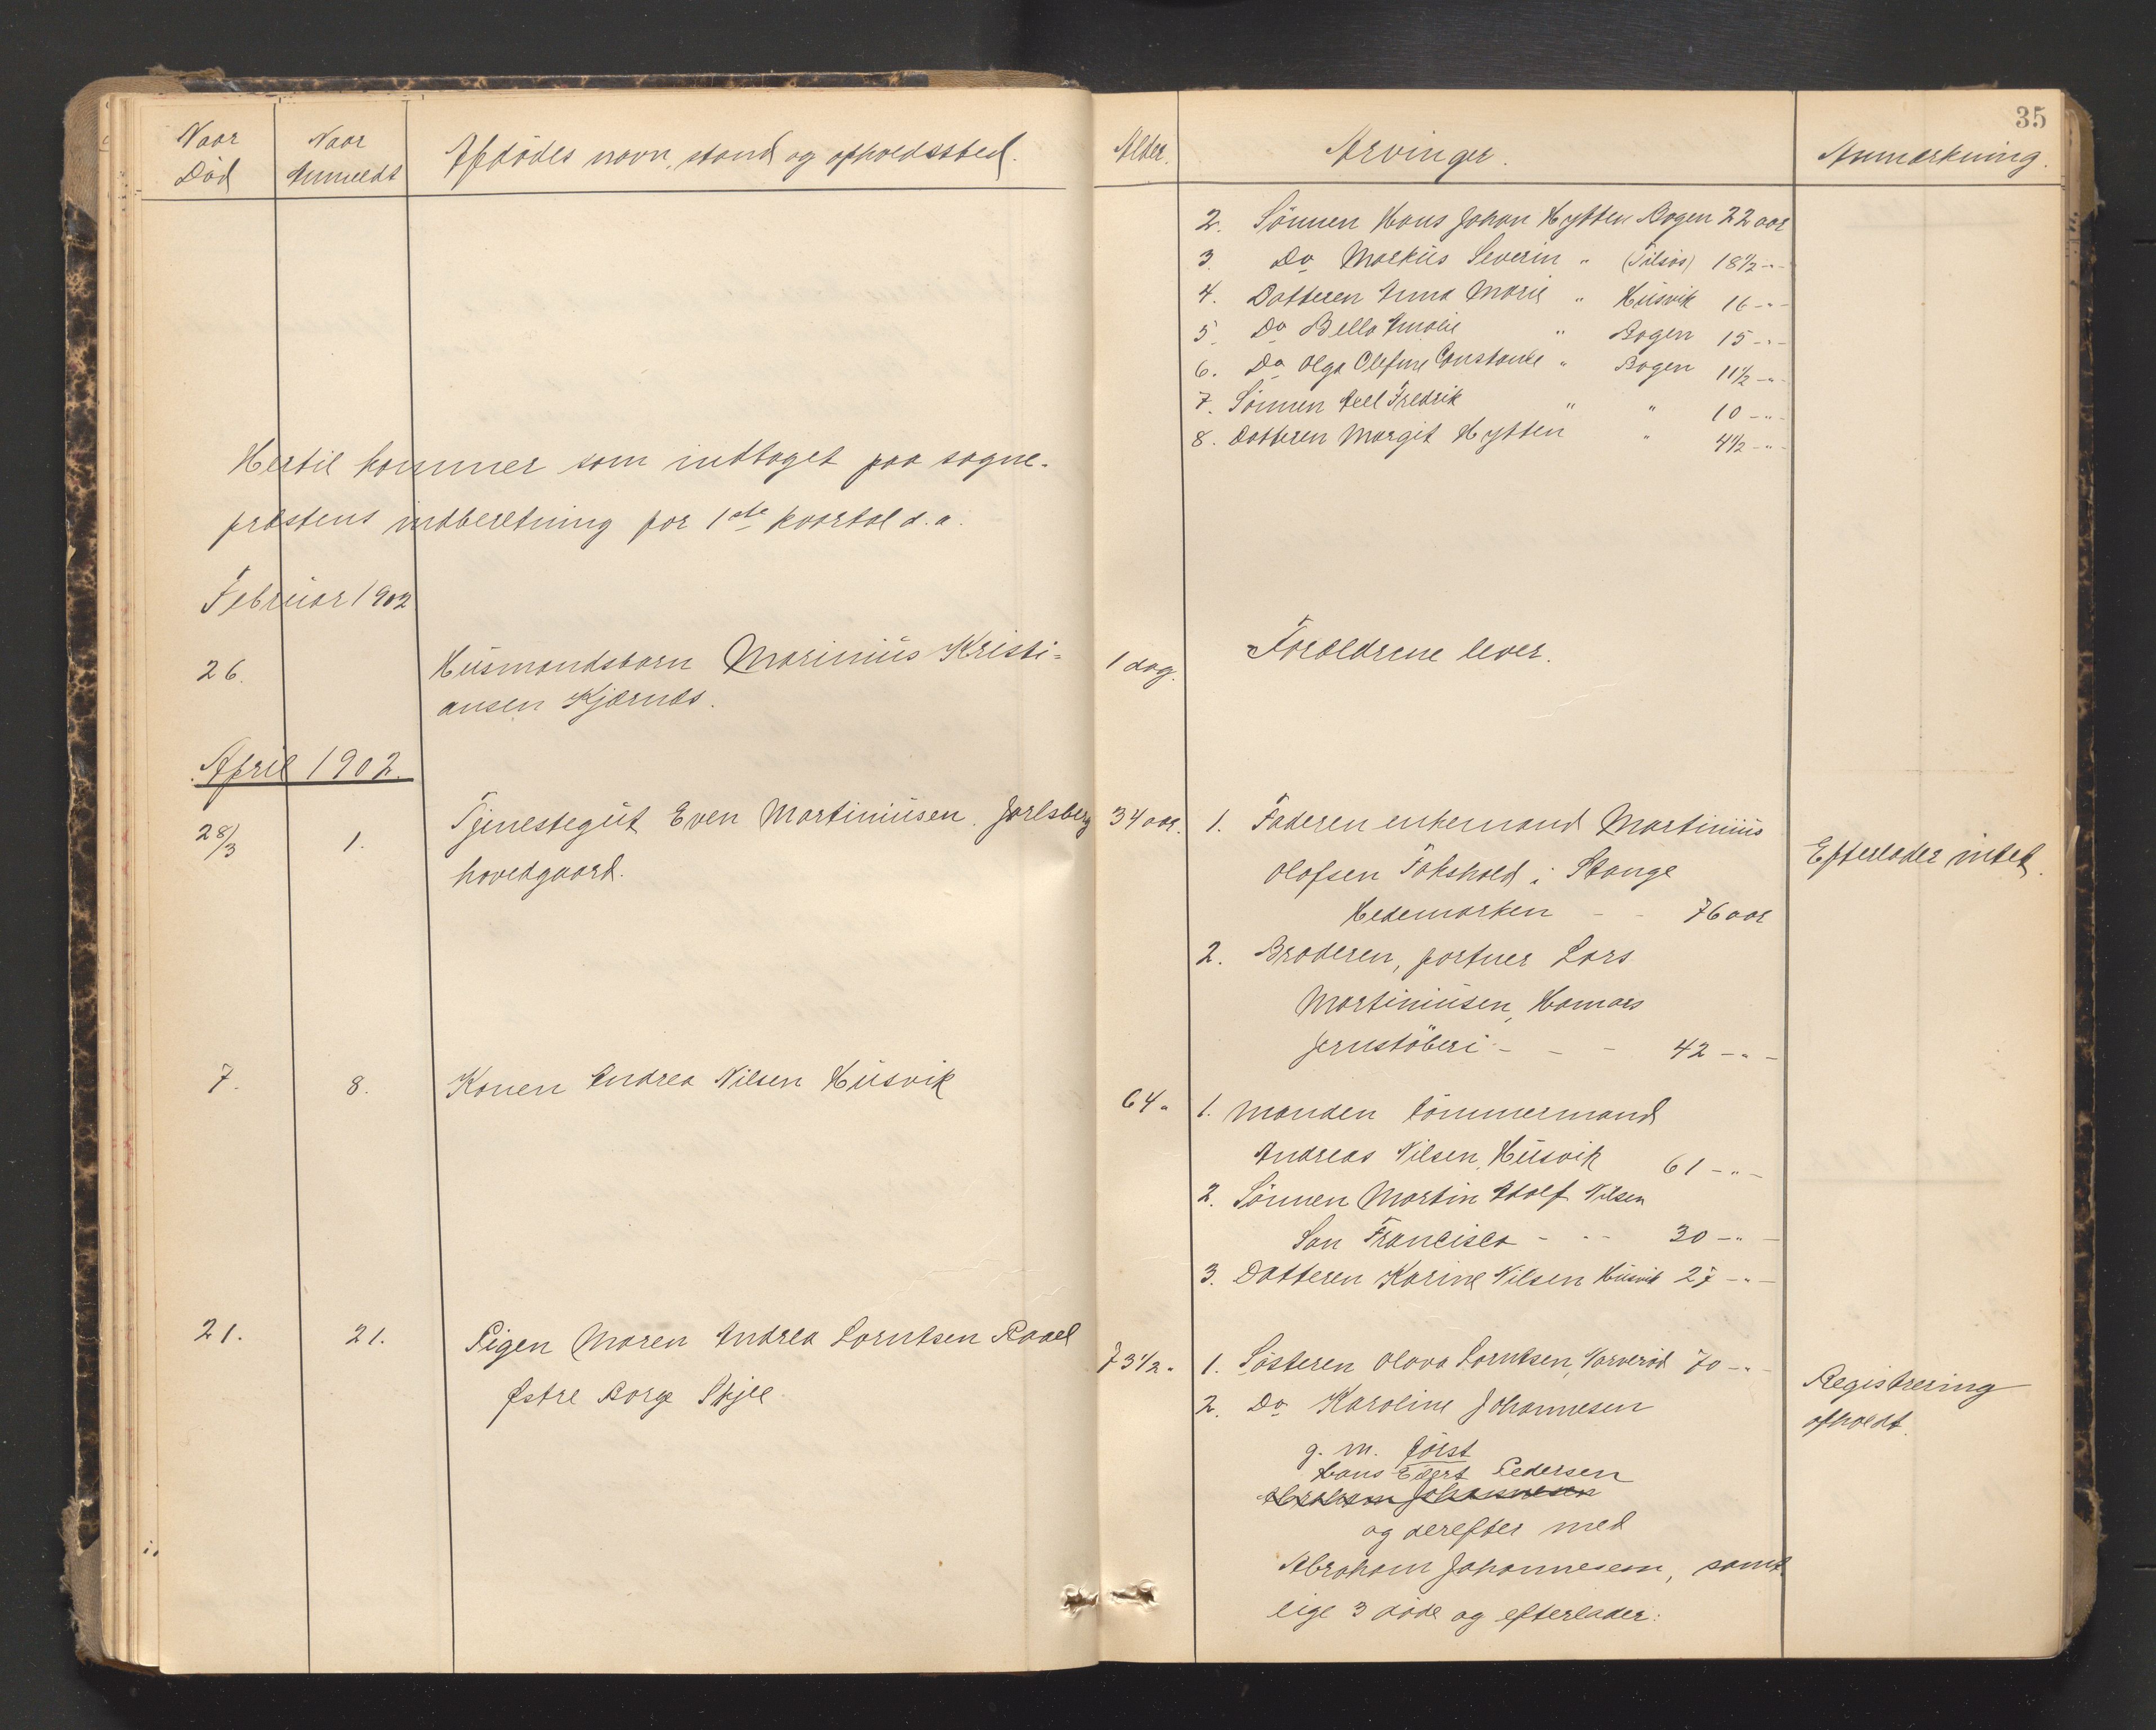 35
Naar
Død
Naar
Anmeldt
Afdødes navn, stand og opholdssted.
Alder.
Arvinger.
Anmærkning.
2. Sönnen Hans Johan Hytten Bogen 22 aar
3. Do Markus Severin " (Tilsjøs) 18½ - " -
4. Datteren Anna Marie " Husvik 16 - " -
5. Do Bella Amalie " Bogen 15 - " -
6. Do Olga Olefine Constanse " Bogen 11½ - " -
7. Sönnen Axel Fredrik " " 10 - " -
8. Datteren Margit Hytten " 4½ - " -
Hertil kommer som indtaget paa sogne-
præstens indberetning for 1ste kvartal d. a.
Februar 1902
26.
Husmandsbarn Marinius Kristi=
ansen Kjærnæs.
1 dag.
Forældrene lever.
April 1902.
28/3
1.
Tjenestegut Even Martiniusen. Jarlsberg
hovedgaard.
34 aar.
1. Faderen enkemand Martinius
Olafsen Fokshold i Stange
Hedemarken - - 76 aar
2. Broderen, portner Lars
Martiniusen, Hamars
Jernstöberi - - - 42 - " -
Efterlader intet.
7.
8.
Konen Andrea Nilsen Husvik
64 "
1. Manden tömmermand
Andreas Nilsen, Husvik 61 - " -
2. Sönnen Martin Adolf Nilsen
San Francisco - - - 30 - " -
3. Datteren Karine Nilsen Husvik 27 - " -
21.
21.
Pigen Maren Andrea Lorntsen Raael
Østre Borge Skjee
73½ "
1. Søsteren Olava Lorntsen, Varveröd 70 - " -
2. Do Karoline Johannesen
g. m. först
Hans Evert Pedersen
Abraham Johannesen
og derefter med
Abraham Johannesen, samt-
lige 3 døde og efterlader:
Registrering
afholdt.